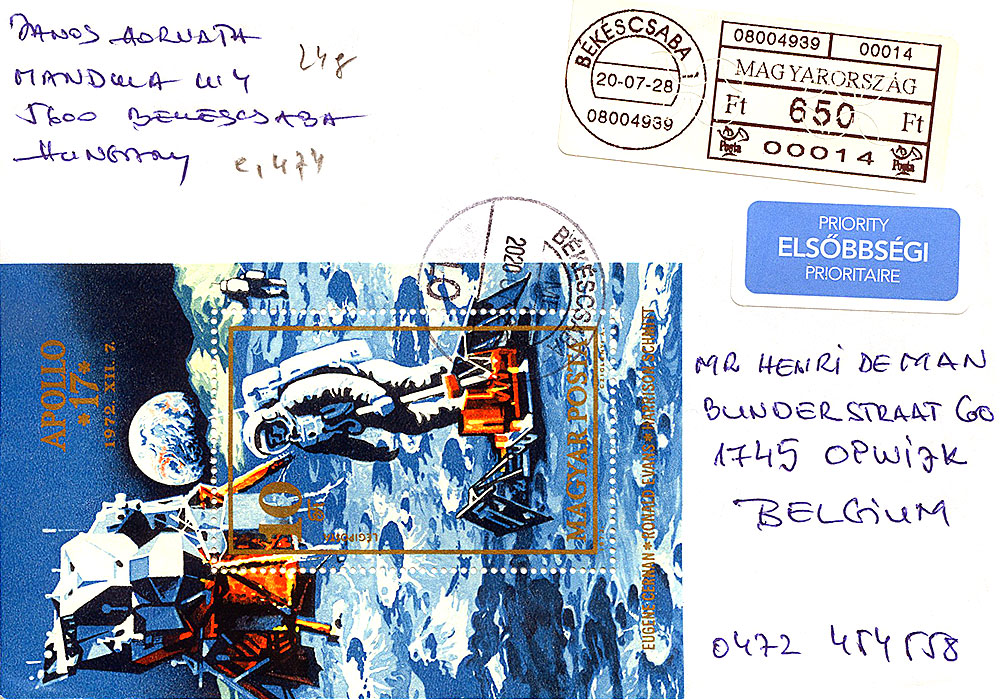 JANOS HORVATH
MANDULA U 4
5600 BEKESCSABA
HUNGARY
24g
e,474
BÉKÉSCSABA 1
20-07-28
08004939
08004939 00014
MAGYARORSZÁG
Ft 650 Ft
Posta 00014 Posta
PRIORITY
ELSŐBBSÉGI
PRIORITAIRE
BÉKÉSCSABA
2020
APOLLO
*17*
1972 XII. 7.
10 Ft
LÉGIPOSTA
MAGYAR POSTA
EUGENE CERNAN * RONALD EVANS * HARRISON SCHMITT
MR HENRI DE MAN
BUNDERSTRAAT 60
1745 OPWIJK
BELGIUM
0472 454558